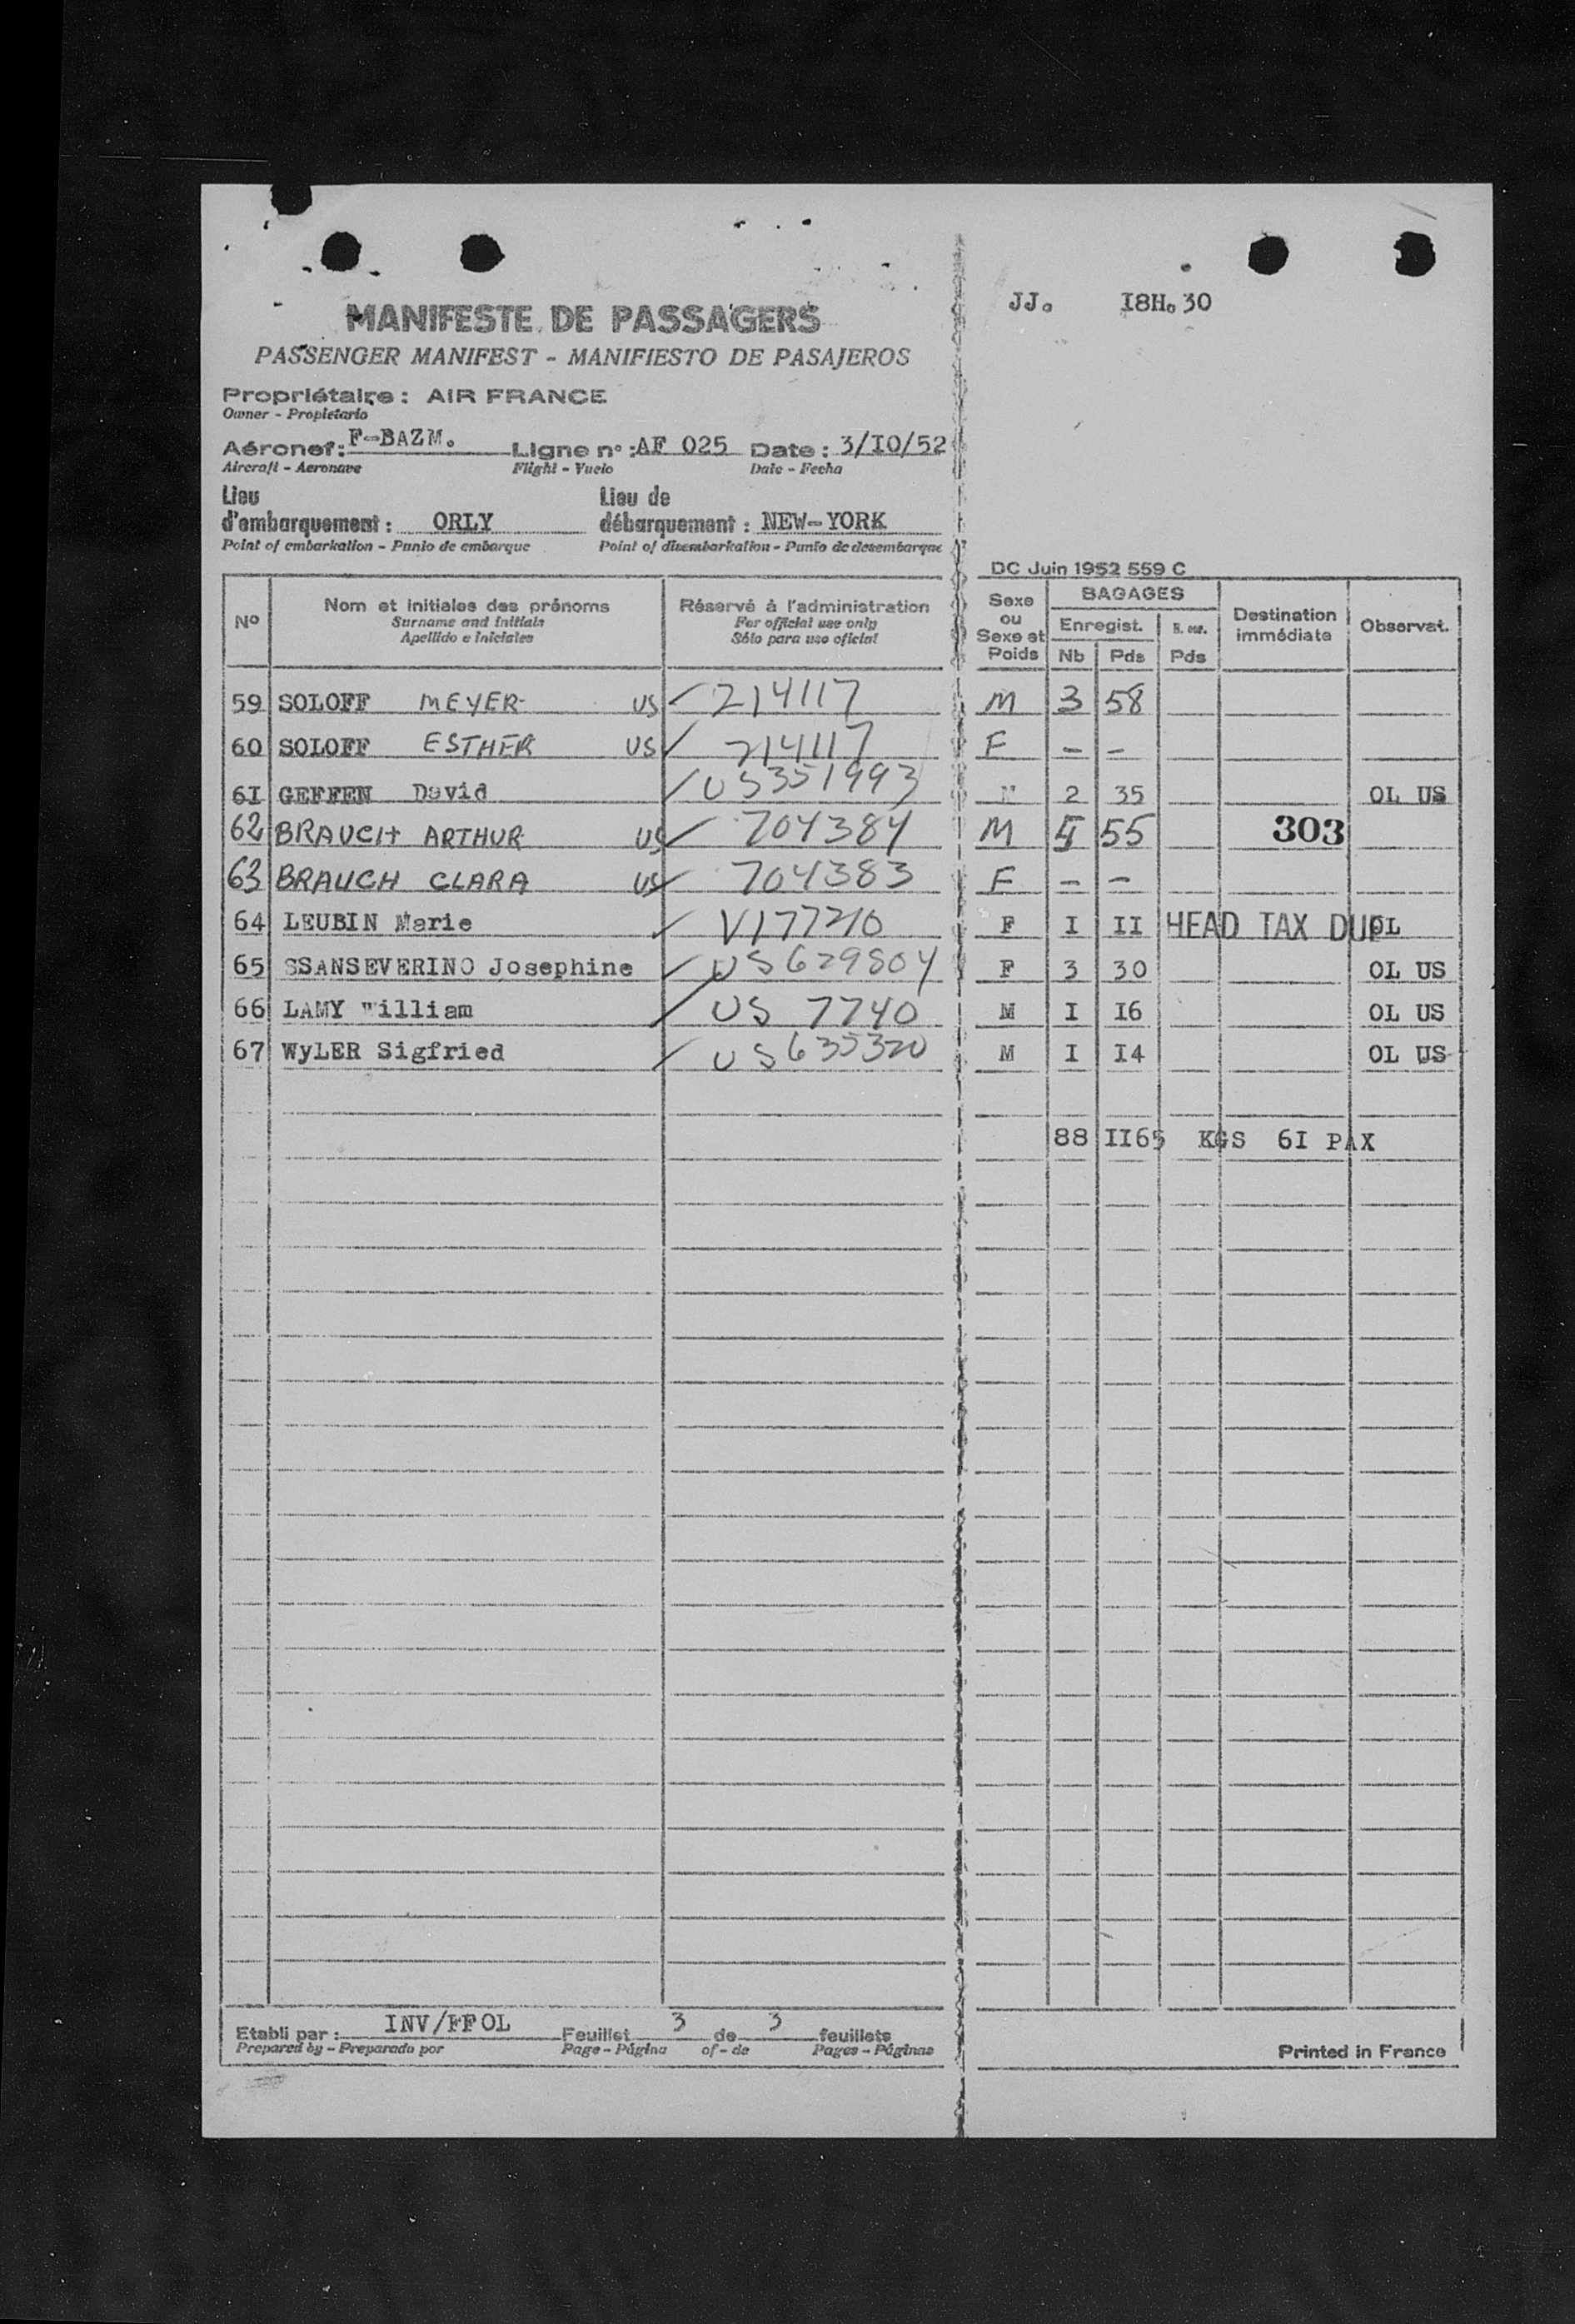 JJ. I8H.30
MANIFESTE DE PASSAGERS
PASSENGER MANIFEST - MANIFIESTO DE PASAJEROS
Propriétaire : AIR FRANCE
Owner - Propietario
Aéronef : F-BAZM. Ligne n° : AF 025 Date : 3/IO/52
Aircraft - Aeronave Flight - Vuelo Date - Fecha
Lieu d'embarquement : ORLY Lieu de débarquement : NEW-YORK
Point of embarkation - Punto de embarque Point of disembarkation - Punto de desembarque
DC Juin 1952 559 C
N° Nom et initiales des prénoms Réservé à l'administration Sexe ou Sexe et Poids BAGAGES Destination immédiate Observat.
Surname and initials For official use only Enregist.
Apellido e iniciales Sólo para uso oficial Nb Pds Pds
59 SOLOFF MEYER US 214117 M 3 58
60 SOLOFF ESTHER US 214117 F - -
6I GEFFEN David US351993 M 2 35 OL US
62 BRAUCH ARTHUR US 704384 M 55 303
63 BRAUCH CLARA US 704383 F - -
64 LEUBIN Marie V177210 F I II HEAD TAX DUE OL
65 SSANSEVERINO Josephine US629804 F 3 30 OL US
66 LAMY William US 7740 M I I6 OL US
67 WyLER Sigfried US635320 M I I4 OL US
88 II65 KGS 6I PAX
Etabli par : INV/FFOL Feuillet 3 de 3 feuillets
Prepared by - Preparado por Page - Página of - de Pages - Páginas
Printed in France